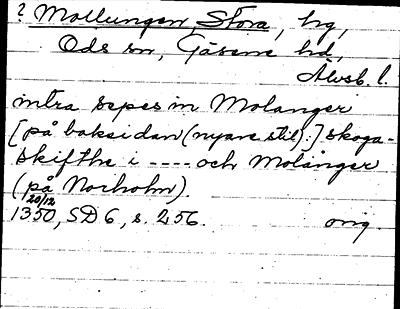 ? Mollungen, Stora, hg,
Ods sn, Gäsene hd,
Älvsb. l.
intra sepes in Molanger
[på baksidan (nyare stil):] skoga-
skifthe i ---- och Molanger
(på Norholm).
20/12
1350, SD 6, s. 256. orig.